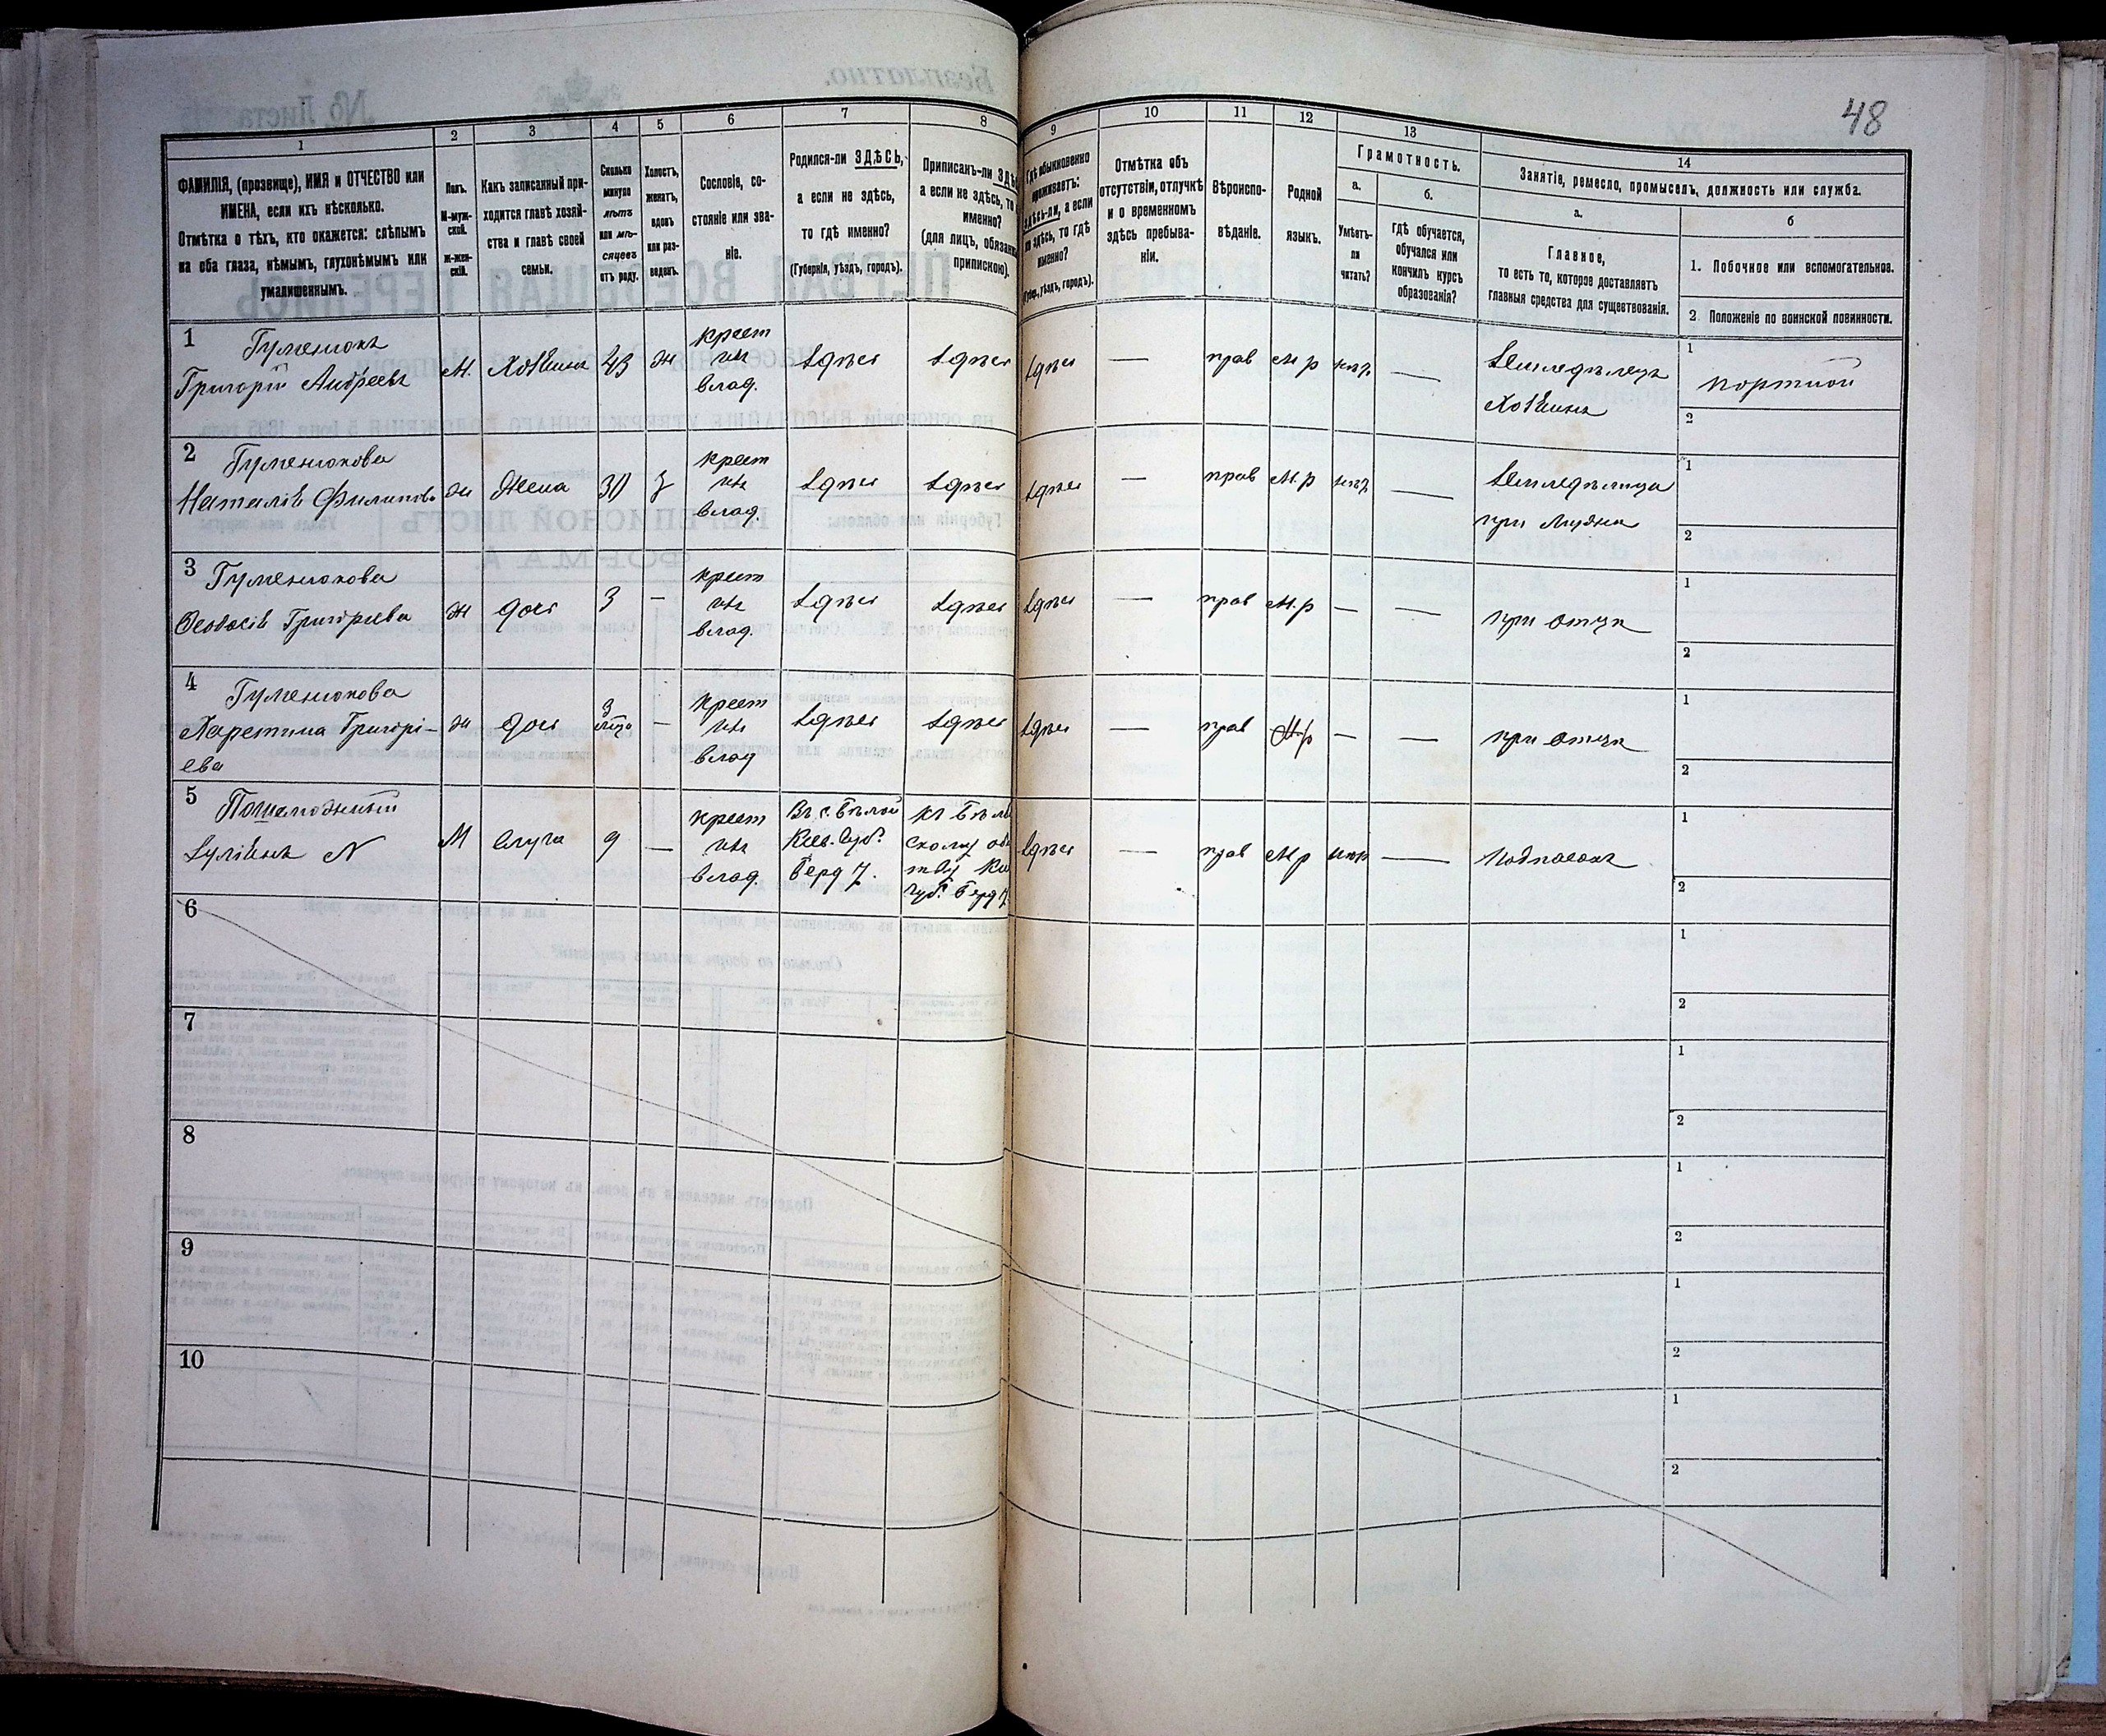 48
1
2
3
4
5
6
7
8
9
10
11
12
13
14
ФАМИЛІЯ, (прозвище), ИМЯ и ОТЧЕСТВО или
ИМЕНА, если ихъ нѣсколько.
Отмѣтка о тѣхъ, кто окажется: слѣпымъ
на оба глаза, нѣмымъ, глухонѣмымъ или
умалишеннымъ.
Полъ.
М-муж-
ской.
Ж-жен-
скій.
Какъ записанный при-
ходится главѣ хозяй-
ства и главѣ своей
семьи.
Сколько
минуло
лѣтъ
или мѣ-
сяцевъ
отъ роду.
Холостъ,
женатъ,
вдовъ
или раз-
веденъ.
Сословіе, со-
стояніе или зва-
ніе.
Родился-ли ЗДѢСЬ,
а если не здѣсь,
то гдѣ именно?
(Губернія, уѣздъ, городъ).
Приписанъ-ли
а если не здѣсь,
именно?
(для лицъ,
припискою).
Гдѣ обыкновенно
проживаетъ:
здѣсь-ли, а если
не здѣсь, то гдѣ
именно?
уѣздъ, городъ).
Отмѣтка объ
отсутствіи, отлучкѣ
и о временномъ
здѣсь пребыва-
ніи.
Вѣроиспо-
вѣданіе.
Родной
языкъ.
Грамотность.
а.
б.
Умѣетъ-
ли
читать?
гдѣ обучается,
обучался или
кончилъ курсъ
образованія?
Занятіе, ремесло, промыселъ, должность или служба.
а.
б
Главное,
то есть то, которое доставляетъ
главныя средства для существованія.
1. Побочное или вспомогательное.
2 Положеніе по воинской повинности.
1 Гуменюкъ
Григорій Андреевъ
М. Хозяинъ 43 ж
крест
изъ
влад.
здѣсь здѣсь здѣсь — прав М р — Земледѣлецъ
Хозяинъ
1 портной
2
2 Гуменюкова
Наталія Филипова
ж Жена 30 з
крест
изъ
влад.
здѣсь здѣсь здѣсь — прав М.р — Земледѣлица
при мужѣ
1
2
3 Гуменюкова
Ѳеодосія Григорьева
ж дочь 3 —
крест
изъ
влад.
здѣсь здѣсь здѣсь — прав М.р — — при отцѣ
1
2
4 Гуменюкова
Харетина Григорі-
ева
ж дочь 3 —
крест
изъ
влад
здѣсь здѣсь здѣсь — прав М.р — — при отцѣ
1
2
5
М слуга 9 —
крест
изъ
влад.
Въ с. Бѣлой
Кіев. Губ.
Берд у.
губ. Берд у.
здѣсь — прав М р — Подпасокъ
1
2
6
1
2
7
1
2
8
1
2
9
1
2
10
1
2